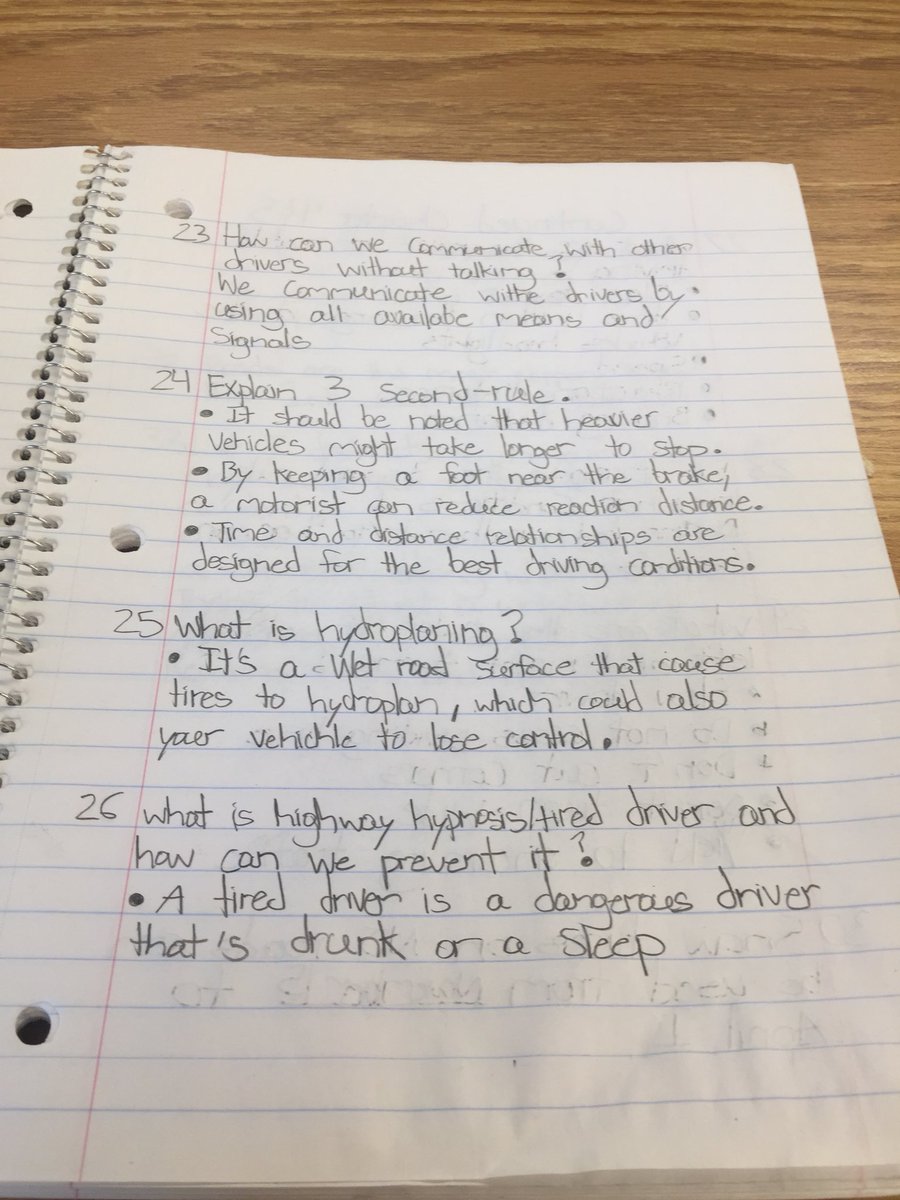 23 How can we communicate with other
drivers without talking?
We communicate withe drivers by
using all availabe means and
Signals
24 Explain 3 second-rule.
• It should be noted that heavier
vehicles might take longer to stop.
• By keeping a foot near the brake,
a motorist can reduce reaction distance.
• Time and distance relationships are
designed for the best driving conditions.
25 What is hydroplaning?
• It's a Wet road surface that cause
tires to hydroplan, which could also
your vehichle to lose control.
26 what is highway hypnosis/tired driver and
how can we prevent it?
• A tired driver is a dangerous driver
that's drunk or a sleep